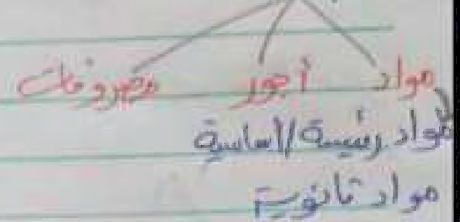 مواد أجور مصروفات
مواد رئيسية/أساسية
مواد ثانوية